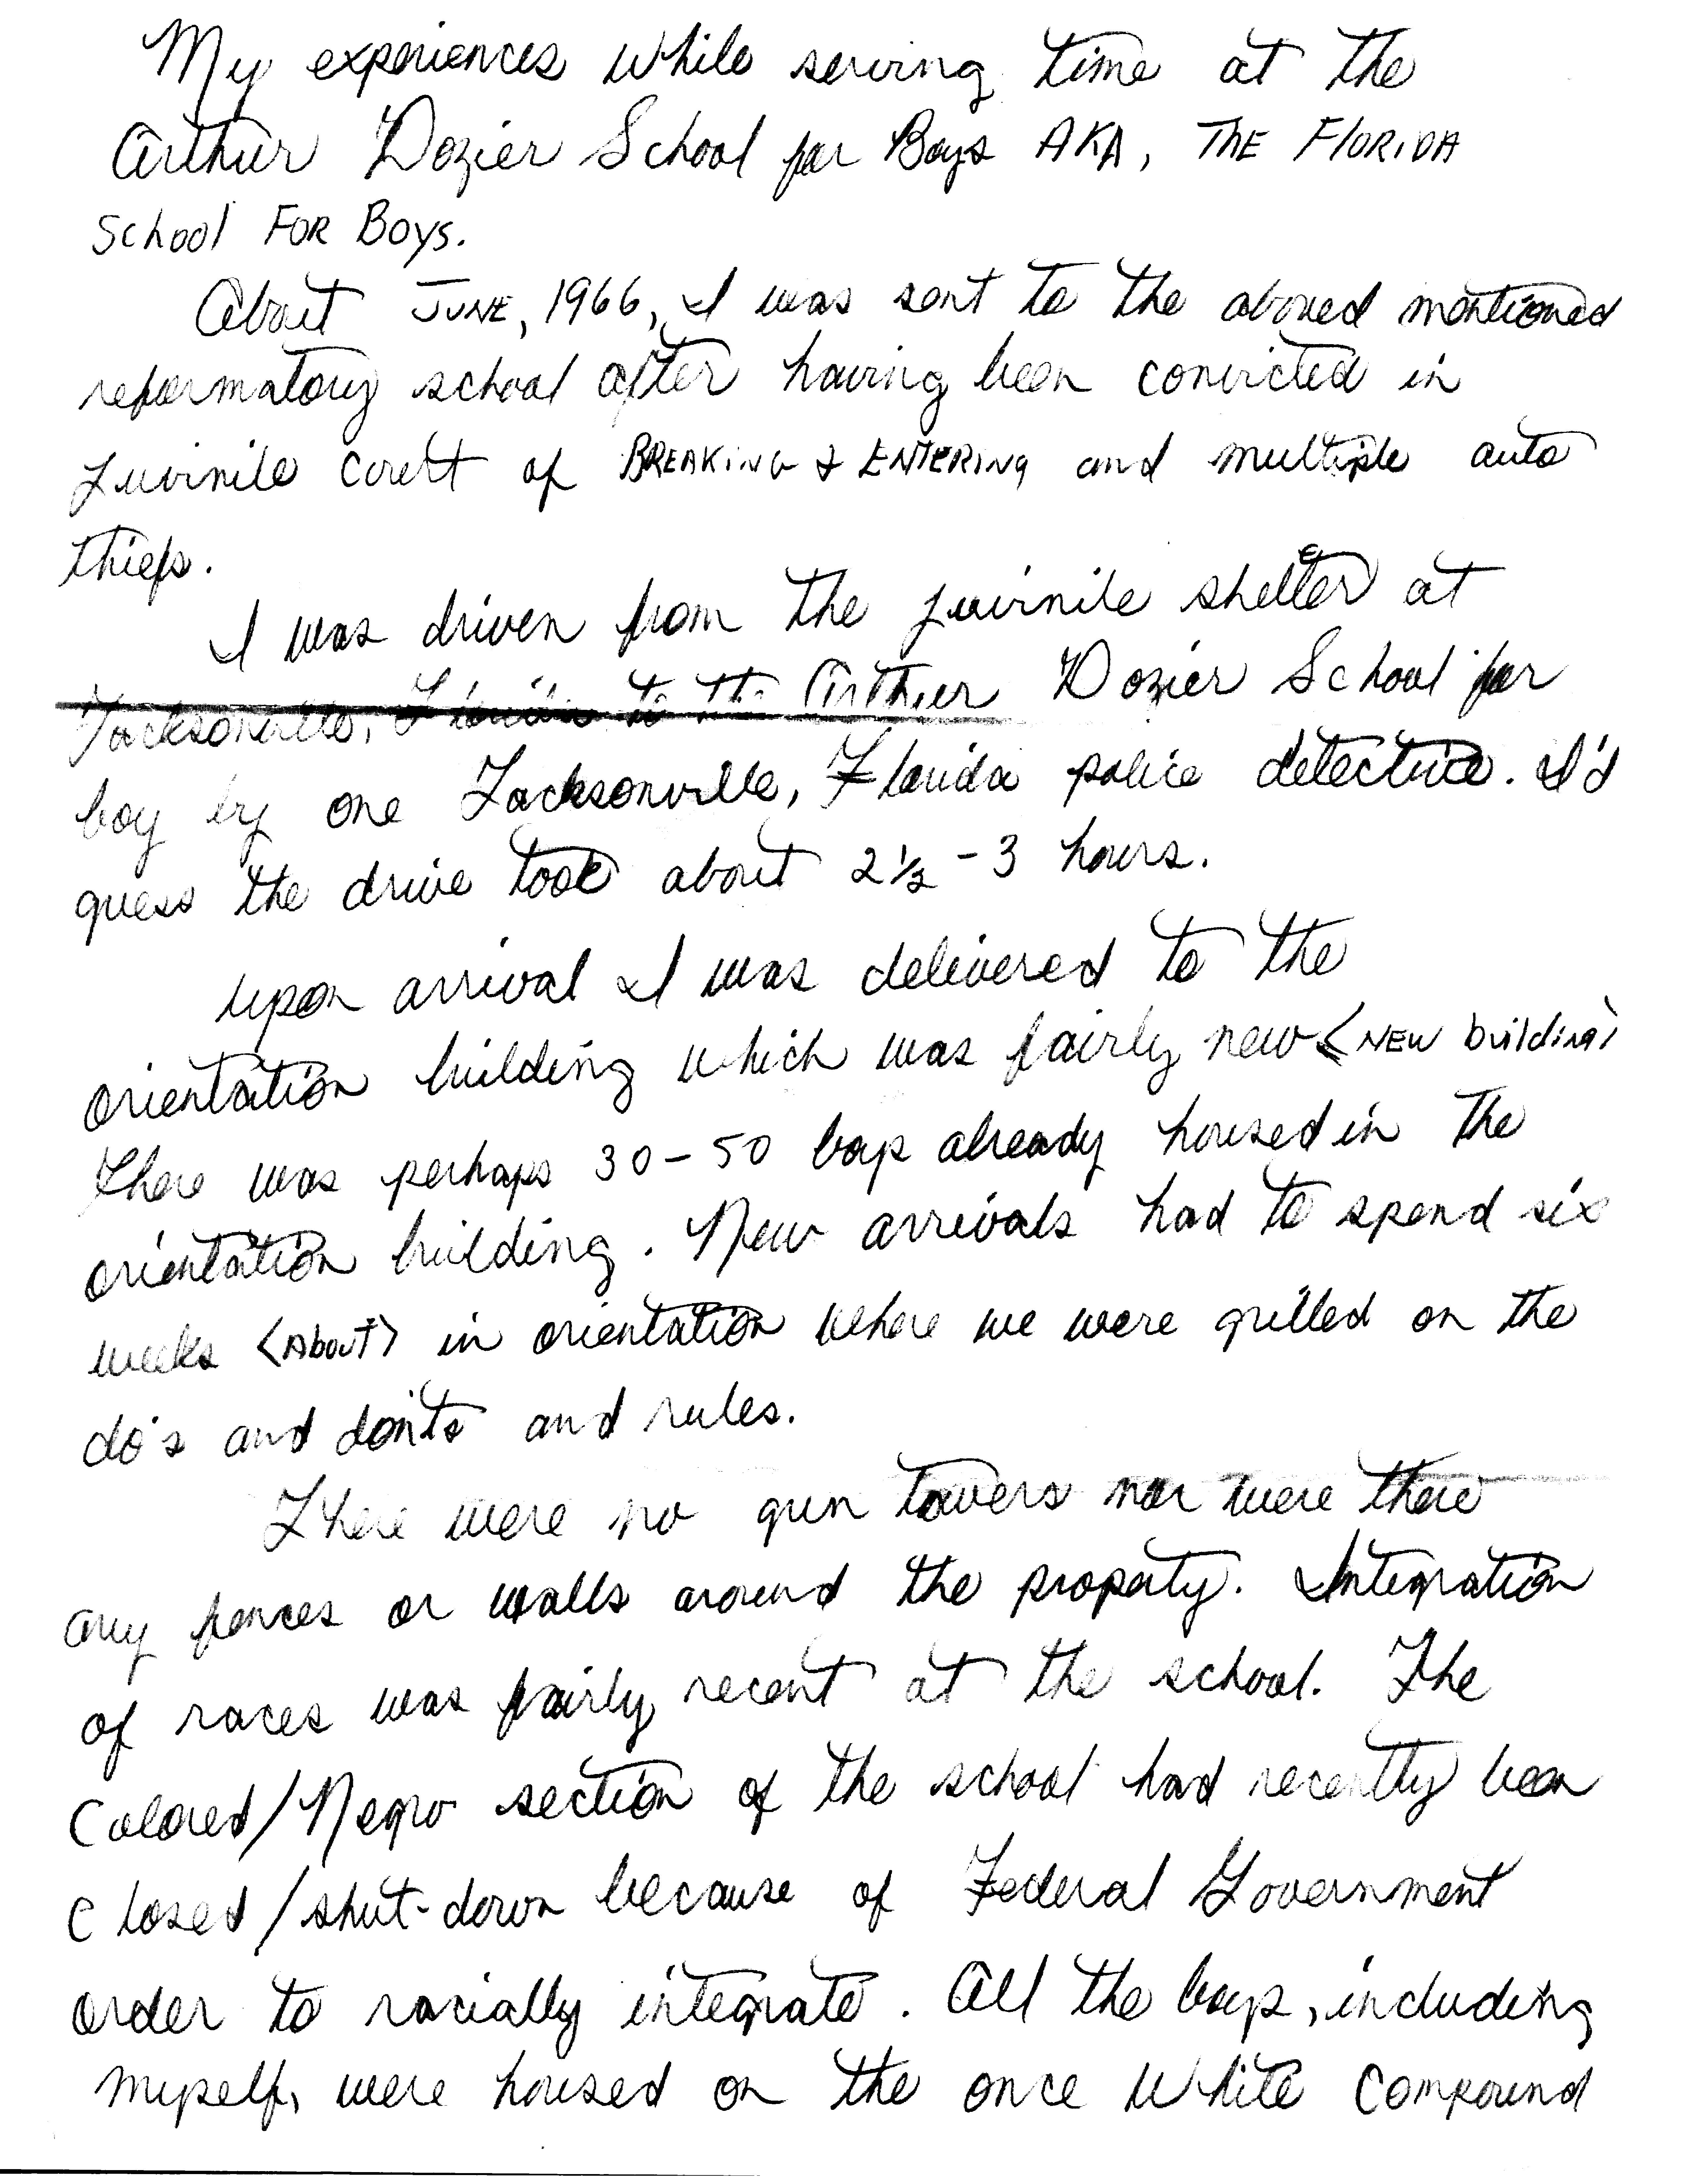 My experiences while serving time at the
Arthur Dozier School for Boys AKA, THE FLORIDA
School FOR BOYS.
About JUNE, 1966, I was sent to the aboved mentioned
reformatory school after having been convicted in
Juvinile court of BREAKING & ENTERING and multiple auto
thiefs.
I was driven from the juvinile shelter at
Jacksonville, Florida to the Arthur Dozier School for
boy by one Jacksonville, Florida police detective. I'd
guess the drive took about 2 1/2 - 3 hours.
Upon arrival I was delivered to the
orientation building which was fairly new <NEW building>
There was perhaps 30-50 boys already housed in the
orientation building. New arrivals had to spend six
weeks <About> in orientation where we were grilled on the
do's and don'ts and rules.
There were no gun towers nor were there
any fences or walls around the property. Integration
of races was fairly recent at the school. The
Colored/Negro section of the school had recently been
closed/shut-down because of Federal Government
order to racially integrate. All the boys, including
myself, were housed on the once White compound